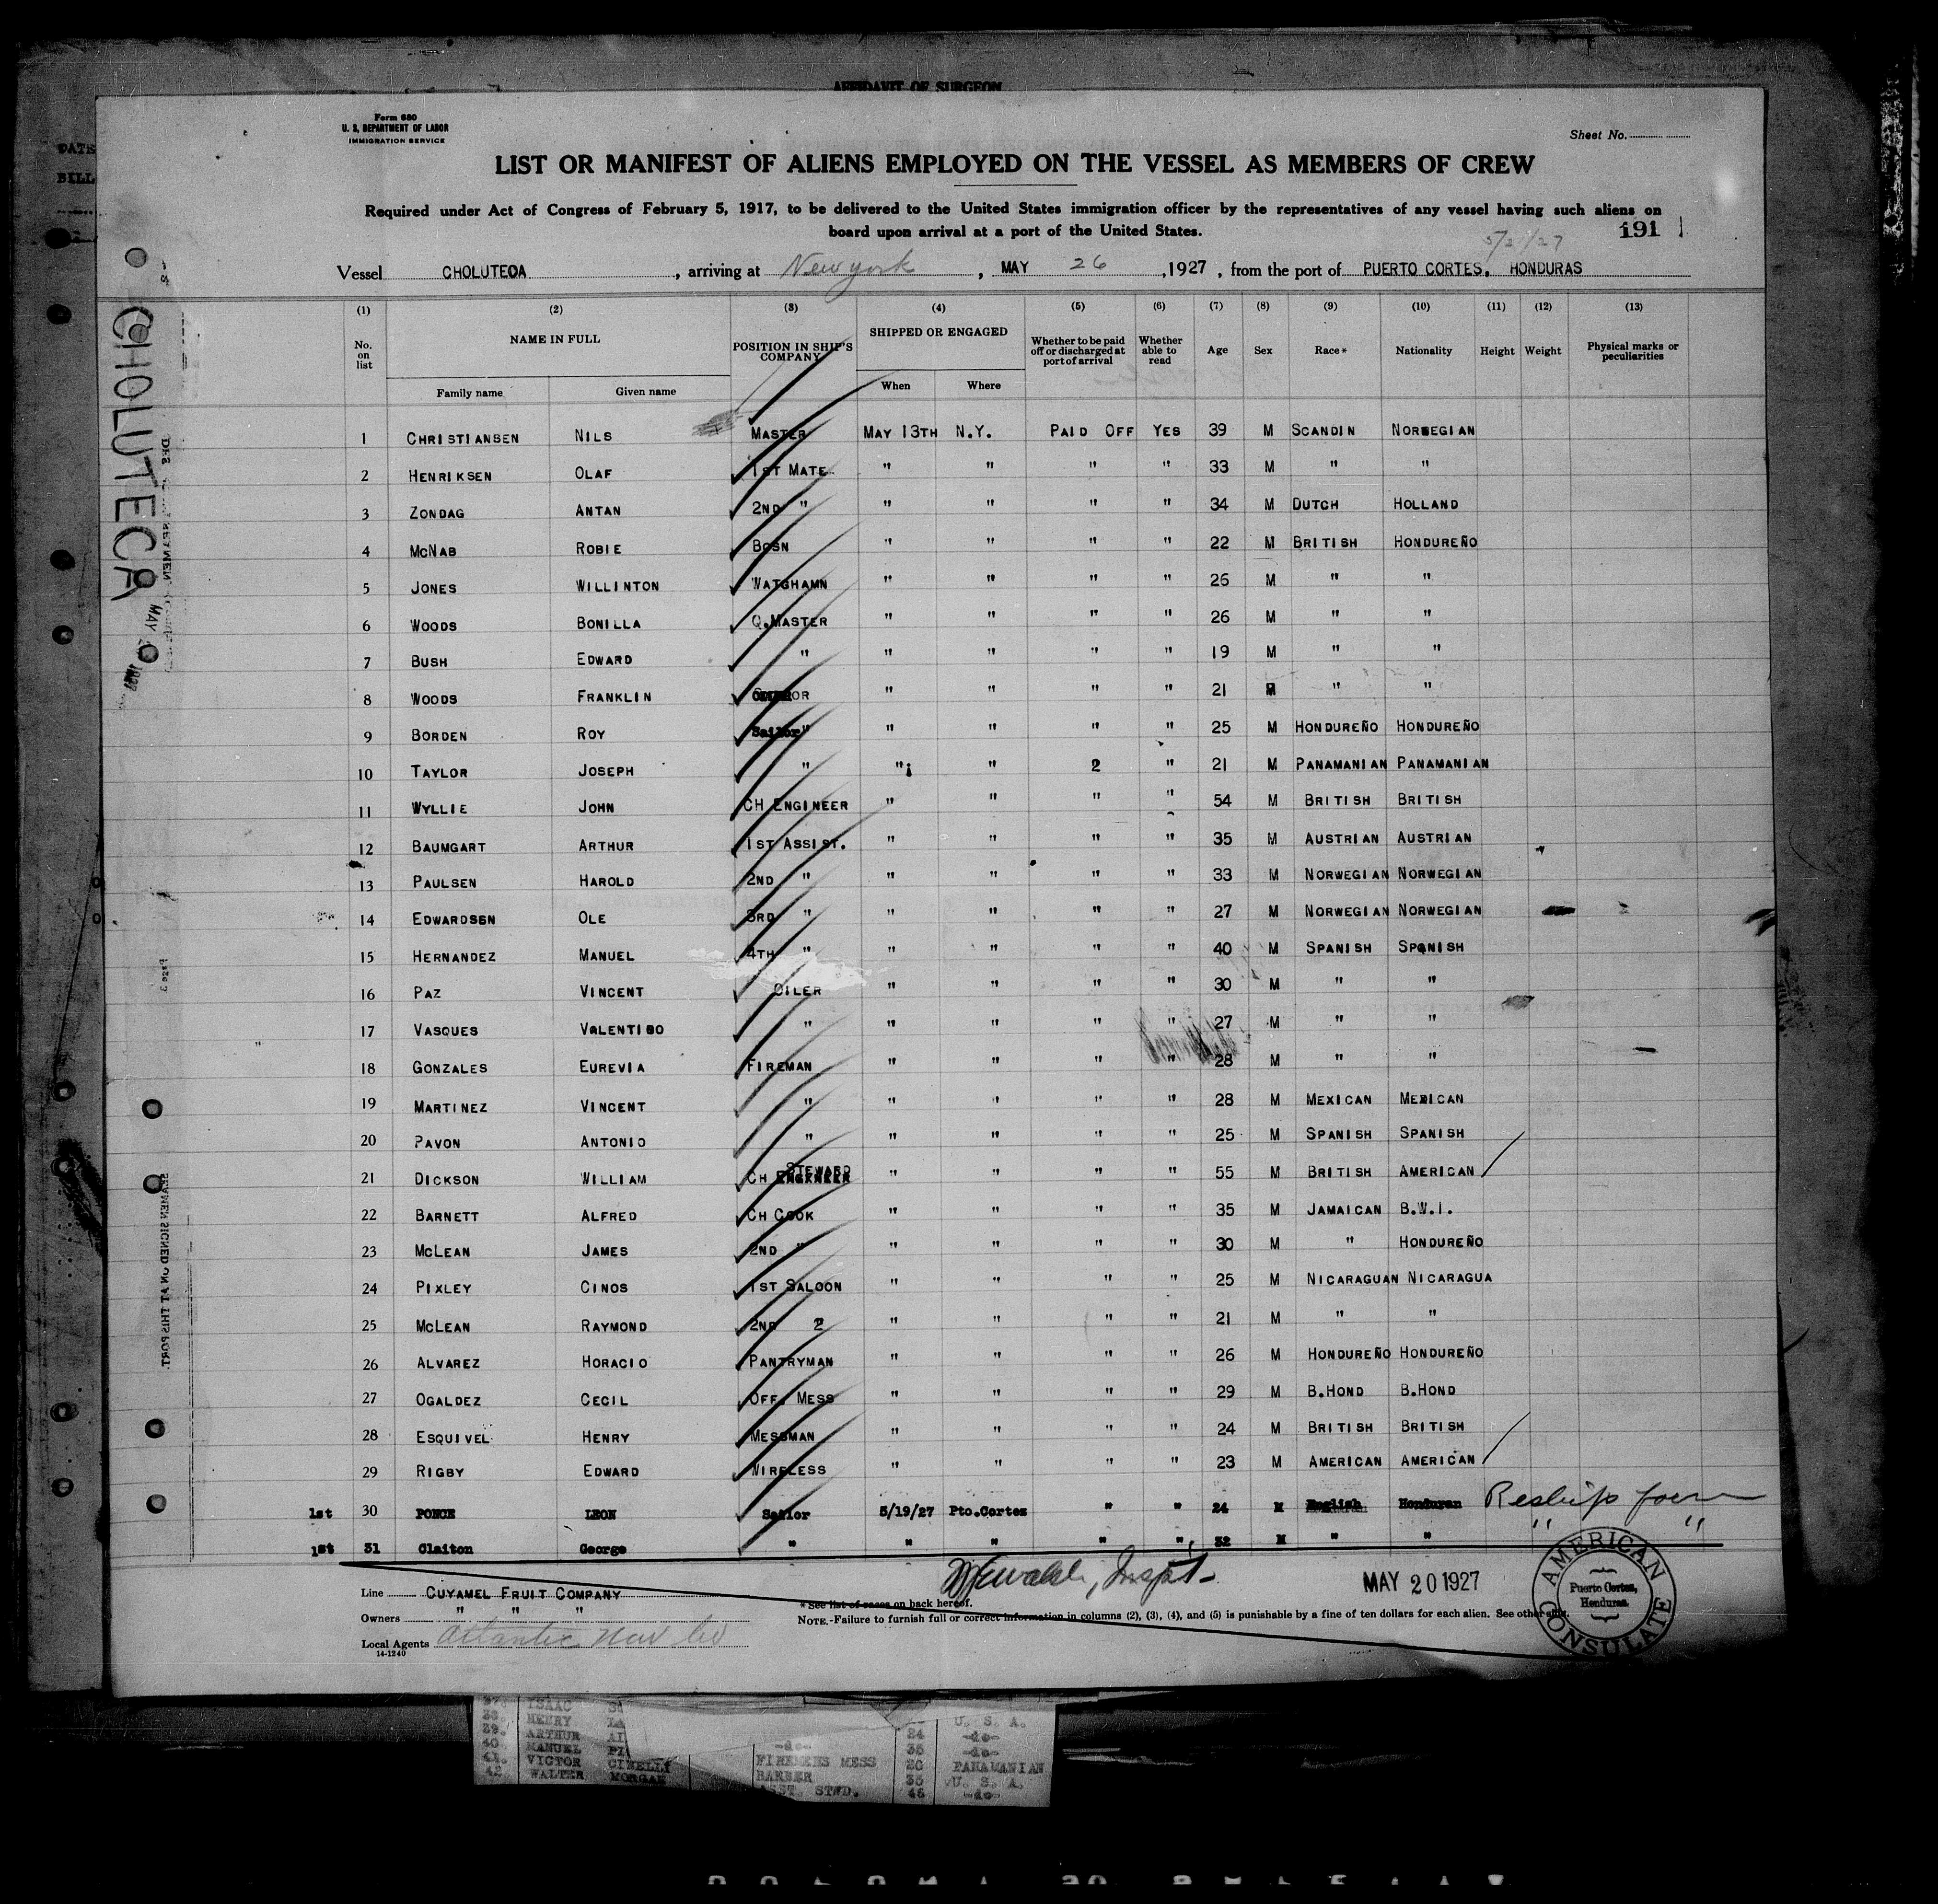 AFFIDAVIT OF SURGEON
DATE
BILL
Form 680
U. S. DEPARTMENT OF LABOR
IMMIGRATION SERVICE
Sheet No.
LIST OR MANIFEST OF ALIENS EMPLOYED ON THE VESSEL AS MEMBERS OF CREW
Required under Act of Congress of February 5, 1917, to be delivered to the United States immigration officer by the representatives of any vessel having such aliens on
board upon arrival at a port of the United States.
191
Vessel CHOLUTECA, arriving at New York, MAY 26, 1927, from the port of PUERTO CORTES, HONDURAS
CHOLUTECA
(1) (2) (3) (4) (5) (6) (7) (8) (9) (10) (11) (12) (13)
No. on list NAME IN FULL POSITION IN SHIP'S COMPANY SHIPPED OR ENGAGED Whether to be paid off or discharged at port of arrival Whether able to read Age Sex Race* Nationality Height Weight Physical marks or peculiarities
Family name Given name When Where
1 CHRISTIANSEN NILS MASTER MAY 13TH N.Y. PAID OFF YES 39 M SCANDIN NORWEGIAN
2 HENRIKSEN OLAF 1ST MATE " " " " 33 M " "
3 ZONDAG ANTAN 2ND " " " " " 34 M DUTCH HOLLAND
4 MCNAB ROBIE BOSN " " " " 22 M BRITISH HONDUREÑO
5 JONES WILLINTON WATGHAMN " " " " 26 M " "
6 WOODS BONILLA Q.MASTER " " " " 26 M " "
7 BUSH EDWARD " " " " " 19 M " "
8 WOODS FRANKLIN " " " " 21 M " "
9 BORDEN ROY Sailor" " " " " 25 M HONDUREÑO HONDUREÑO
10 TAYLOR JOSEPH " "; " 2 " 21 M PANAMANIAN PANAMANIAN
11 WYLLIE JOHN CH ENGINEER " " " " 54 M BRITISH BRITISH
12 BAUMGART ARTHUR 1ST ASSIST. " " " " 35 M AUSTRIAN AUSTRIAN
13 PAULSEN HAROLD 2ND " " " " " 33 M NORWEGIAN NORWEGIAN
14 EDWARDSEN OLE 3RD " " " " " 27 M NORWEGIAN NORWEGIAN
15 HERNANDEZ MANUEL 4TH " " " " " 40 M SPANISH SPANISH
16 PAZ VINCENT OILER " " " " 30 M " "
17 VASQUES " " " " " 27 M " "
18 GONZALES EUREVIA FIREMAN " " " " 28 M " "
19 MARTINEZ VINCENT " " " " " 28 M MEXICAN MEXICAN
20 PAVON ANTONIO " " " " " 25 M SPANISH SPANISH
21 DICKSON WILLIAM CH STEWARD " " " " 55 M BRITISH AMERICAN
22 BARNETT ALFRED CH COOK " " " " 35 M JAMAICAN B.W.I.
23 MCLEAN JAMES 2ND " " " " " 30 M " HONDUREÑO
24 PIXLEY CINOS 1ST SALOON " " " " 25 M NICARAGUAN NICARAGUA
25 MCLEAN RAYMOND 2ND 2 " " " " 21 M " "
26 ALVAREZ HORACIO PANTRYMAN " " " " 26 M HONDUREÑO HONDUREÑO
27 OGALDEZ CECIL OFF. MESS " " " " 29 M B.HOND B.HOND
28 ESQUIVEL HENRY MESSMAN " " " " 24 M BRITISH BRITISH
29 RIGBY EDWARD WIRELESS " " " " 23 M AMERICAN AMERICAN
1st 30 PONCE LEON Sailor 5/19/27 Pto.Cortez " " 24 M English Honduran
1st 31 Claiton George " " " " " 32 M " "
Line CUYAMEL FRUIT COMPANY
Owners " " "
Local Agents Atlantic Nav Co
14-1240
* See list of races on back hereof.
NOTE.-Failure to furnish full or correct information in columns (2), (3), (4), and (5) is punishable by a fine of ten dollars for each alien. See other side.
MAY 20 1927
AMERICAN CONSULATE
Puerto Cortes, Honduras.
SEAMEN SIGNED ON AT THIS PORT.
ISAAC U. S. A.
38. HENRY 24 -do-
39. ARTHUR 35 -do-
40 MANUEL FIREMENS MESS PANAMANIAN
41. VICTOR CINELLI BARBER 35 U. S. A.
42. WALTER MORGAN ASST. STWD. 45 -do-